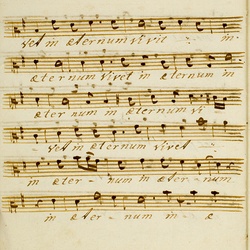 vet in æternum vivit in
æternum vivet in æternum in
æter num in æternum vi
vet in æternum vivet
in æter num in æter num
in æter num in æ